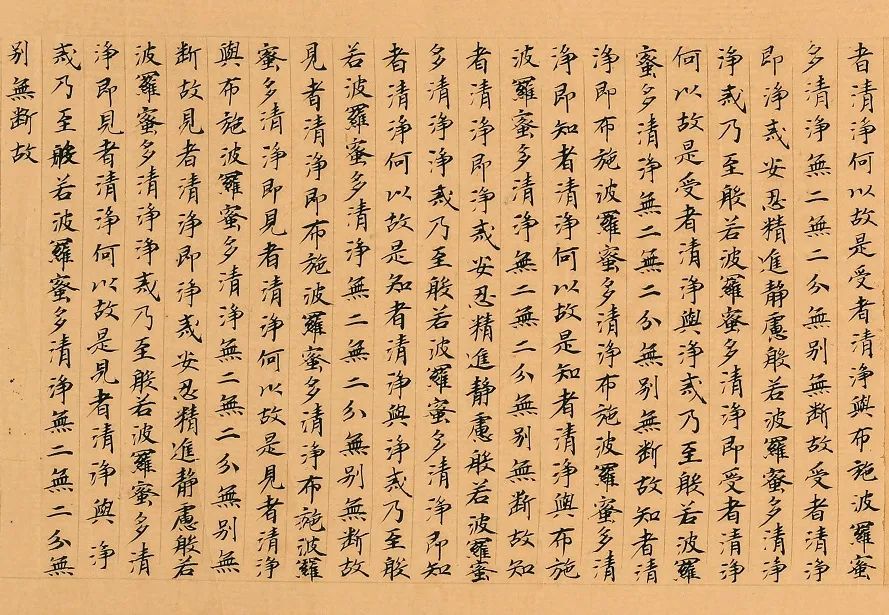 者清淨何以故是受者清淨與布施波羅蜜
多清淨無二無二分無別無斷故受者清淨
即淨戒安忍精進靜慮般若波羅蜜多清淨
淨戒乃至般若波羅蜜多清淨即受者清淨
何以故是受者清淨與淨戒乃至般若波羅
蜜多清淨無二無二分無別無斷故知者清
淨即布施波羅蜜多清淨布施波羅蜜多清
淨即知者清淨何以故是知者清淨與布施
波羅蜜多清淨無二無二分無別無斷故知
者清淨即淨戒安忍精進靜慮般若波羅蜜
多清淨淨戒乃至般若波羅蜜多清淨即知
者清淨何以故是知者清淨與淨戒乃至般
若波羅蜜多清淨無二無二分無別無斷故
見者清淨即布施波羅蜜多清淨布施波羅
蜜多清淨即見者清淨何以故是見者清淨
與布施波羅蜜多清淨無二無二分無別無
斷故見者清淨即淨戒安忍精進靜慮般若
波羅蜜多清淨淨戒乃至般若波羅蜜多清
淨即見者清淨何以故是見者清淨與淨
戒乃至般若波羅蜜多清淨無二無二分無
別無斷故